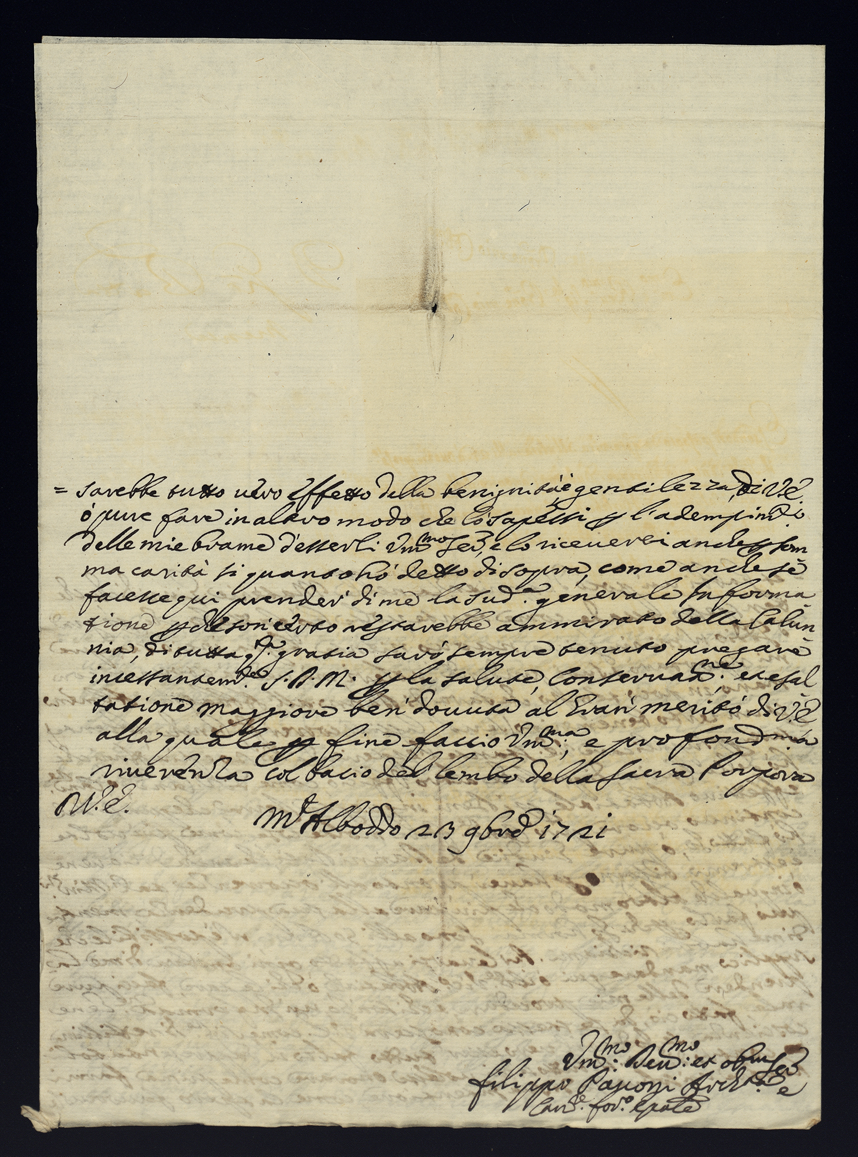 = sarebbe tutto vero effetto della benignità e gentilezza, di V.E.
ó pure fare in altro modo che lo sapessi p l'adempim.to
delle mie brame d'esserli Um.mo Se.re, e lo riceverei anche p som
ma carità si quanto hó detto di sopra, come anche sé
facesse qui prender di me la sud.a generale Informa
tione p che son certo restarebbe ammirato della Calun
nia, di tutta q.ta gratia saró sempre tenuto pregaré
incessantem.te S.D.M. p la salute, conservaa.ne et esal
tatione maggiore ben dovuta al gran merito di V.E.
alla quale p fine faccio Um.ma, e profond.ma
riverenza col bacio del lembo della sacra Porpora
D.V.E.
M.te Alboddo 23 9bre 1721
Um.mo Dev.mo et obl.mo Se.re
filippo Arcip.te
Vic.o for.o